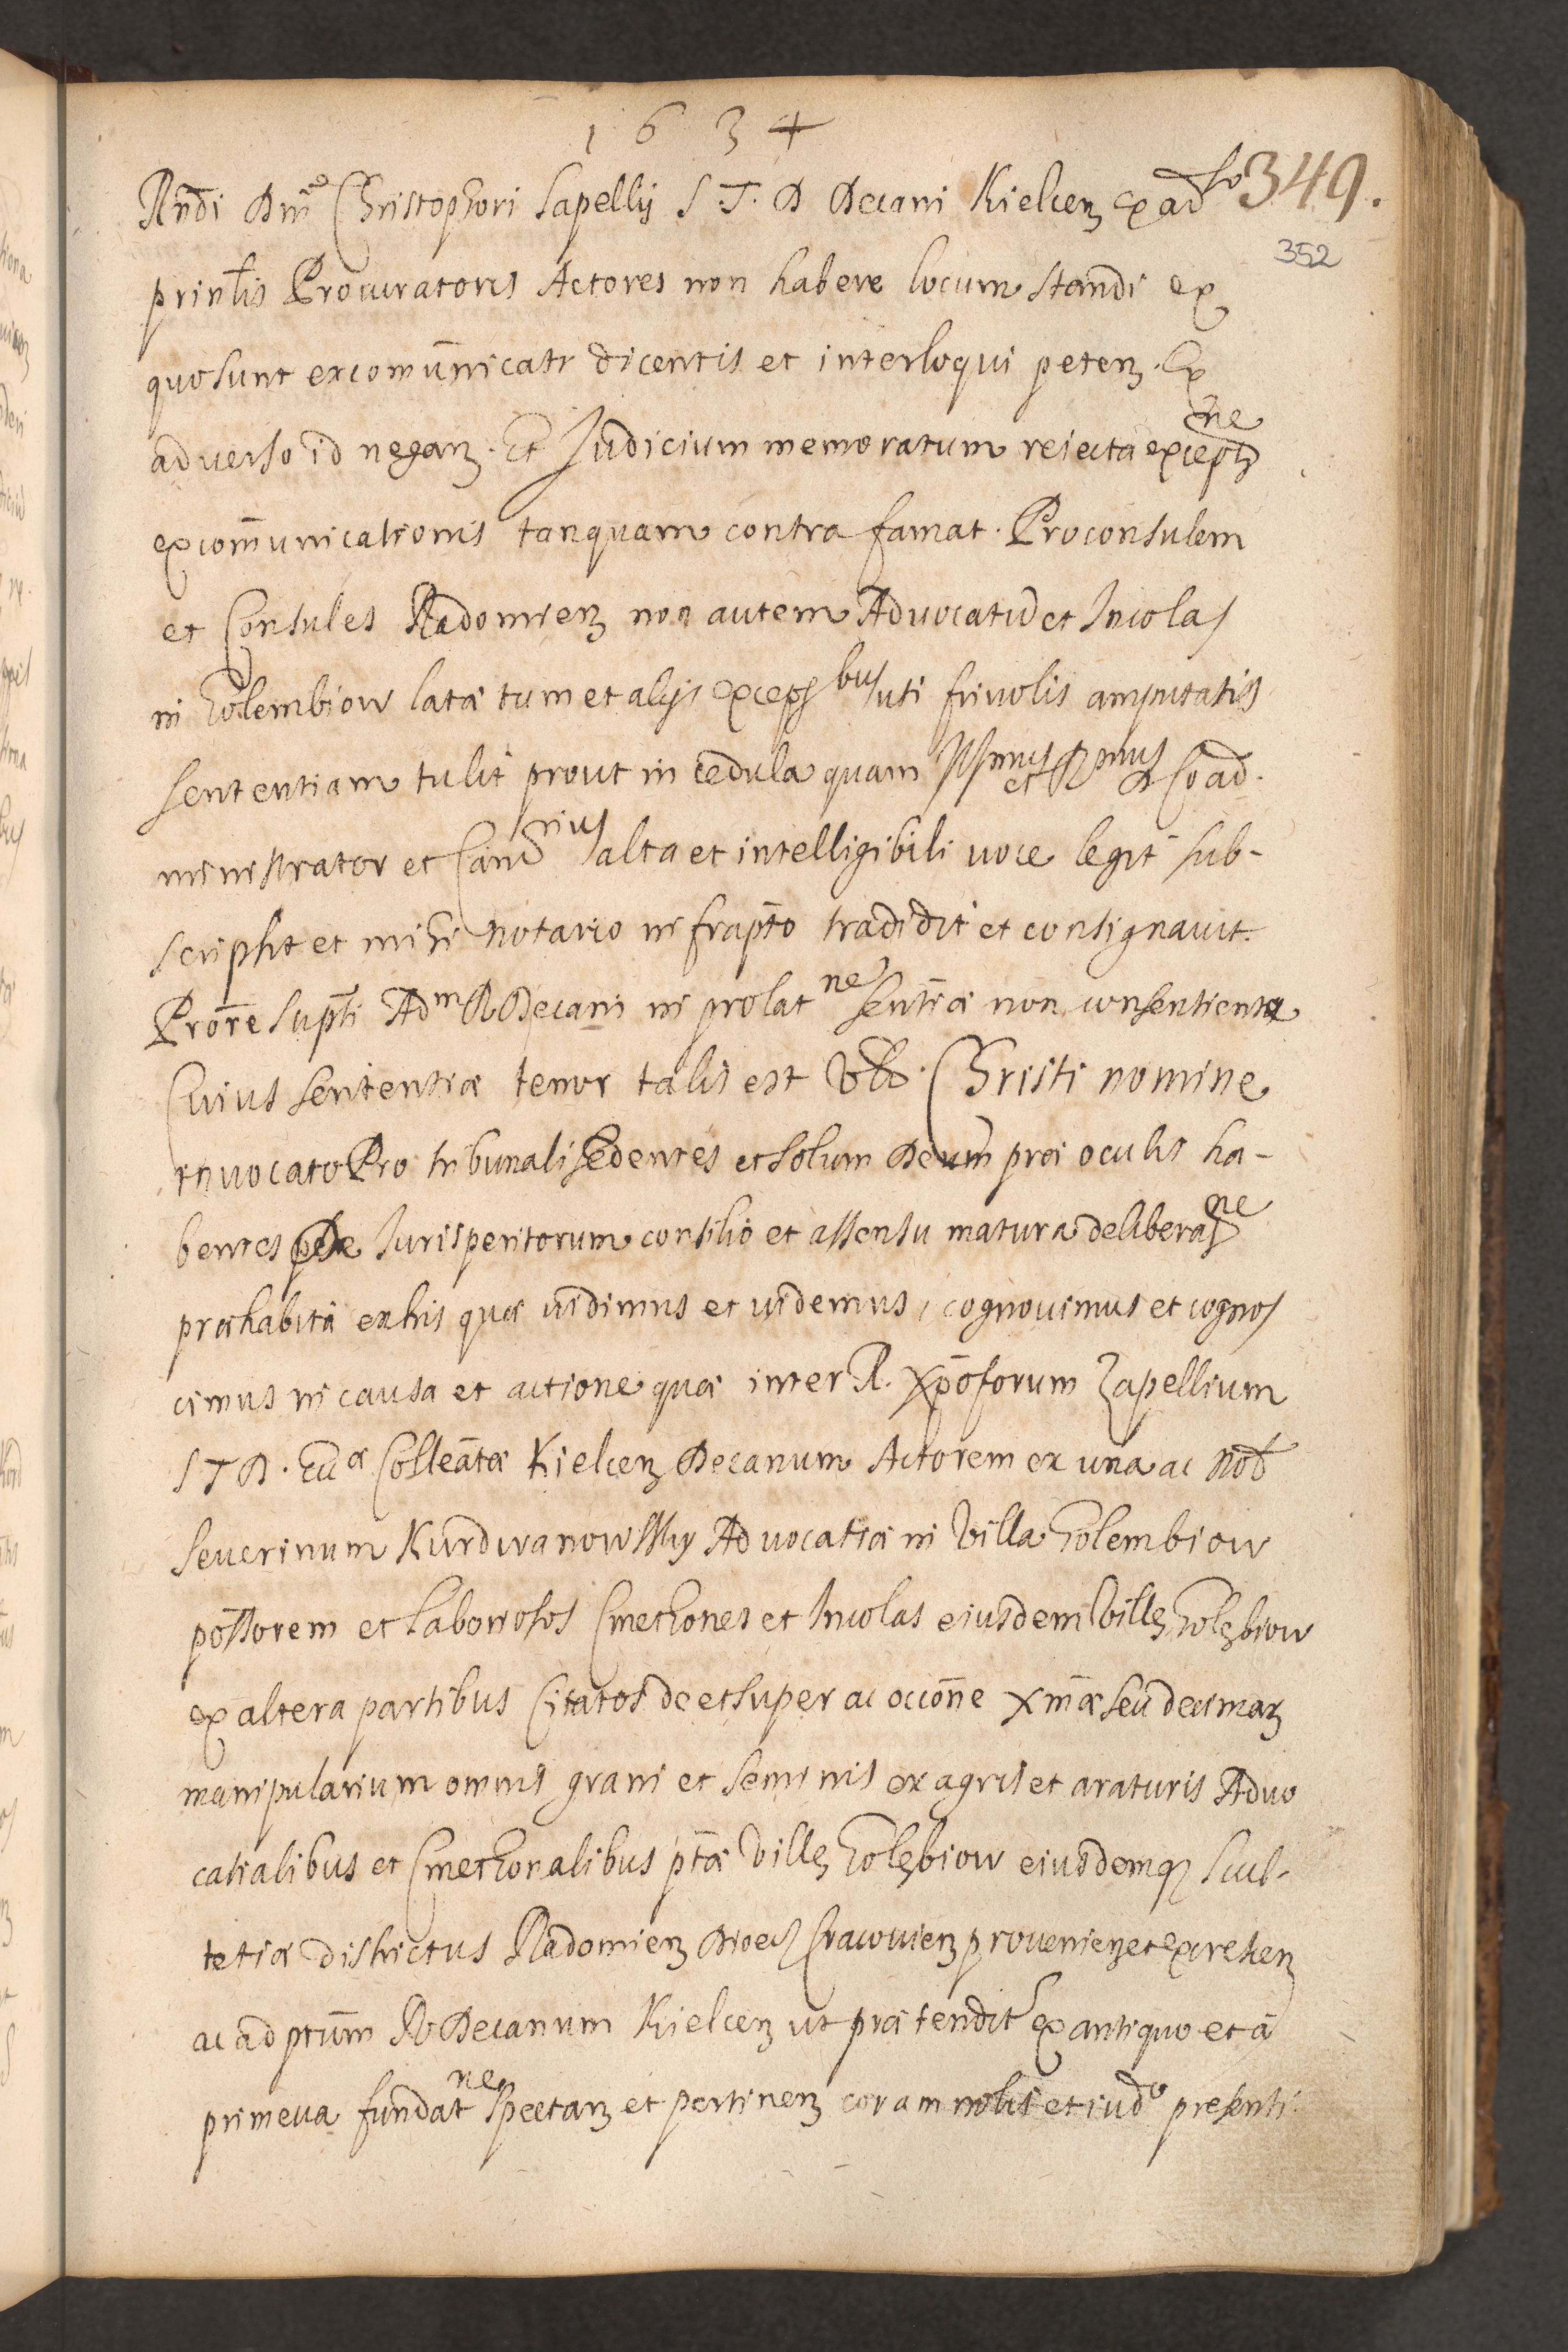 1634
349.
352
Rndi Dni Christophori Sapellij S. T. D Decani Kielcen ex adso
prinlis Procuratoris Actores non habere locum standi ex
quo sunt excomunicati dicentis et interloqui peten. Ex
adverso id negan. Et Judicium memoratum reiecta exceptne
excomunicationis tanquam contra famat. Proconsulem
et Consules Radomien non autem Advocatum et Incolas
in Golembiow lata tum et alijs excepbus uti frivolis amputatis
sententiam tulit prout in cedula quam Illmus et Rmus D Coad-
ministrator et Canrius alta et intelligibili uoce legit sub-
scripsit et mihi notario infrapto tradidit et consignauit.
Prore supti Adm R Decani in prolatne sentiæ non consentiente
Cuius sententiæ tenor talis est Vtt. Christi nomine
invocato Pro tribunali sedentes et solum Deum præ oculis ha-
bentes De Jurisperitorum consilio et assensu matura deliberane
præhabita ex his quæ uidimus et uidemus, cognouimus et cognos
cimus in causa et actione quæ inter R. Xpoforum Zapellium
S T D. Ecclæ Colleatæ Kielcen Decanum Actorem ex una ac Nob
Severinum Kurdwanowsky Advocatiæ in Villa Golembiow
possorem et Laboriosos Cmethones et Incolas eiusdem Villę Golębiow
ex altera partibus Citatos de et super ac occone Xmæ seu decimar
manipularium omnis grani et seminis ex agris et araturis Advo
catialibus et Cmethonalibus ptæ Villę Golębiow eiusdemq Scul-
tetiæ districtus Radomien Dioec Cracouien prouenien et excrescen
ac ad ptum R Decanum Kielcen ut prætendit ex antiquo et a
primeua fundatne spectan et pertinen coram nobis et iudo presenti